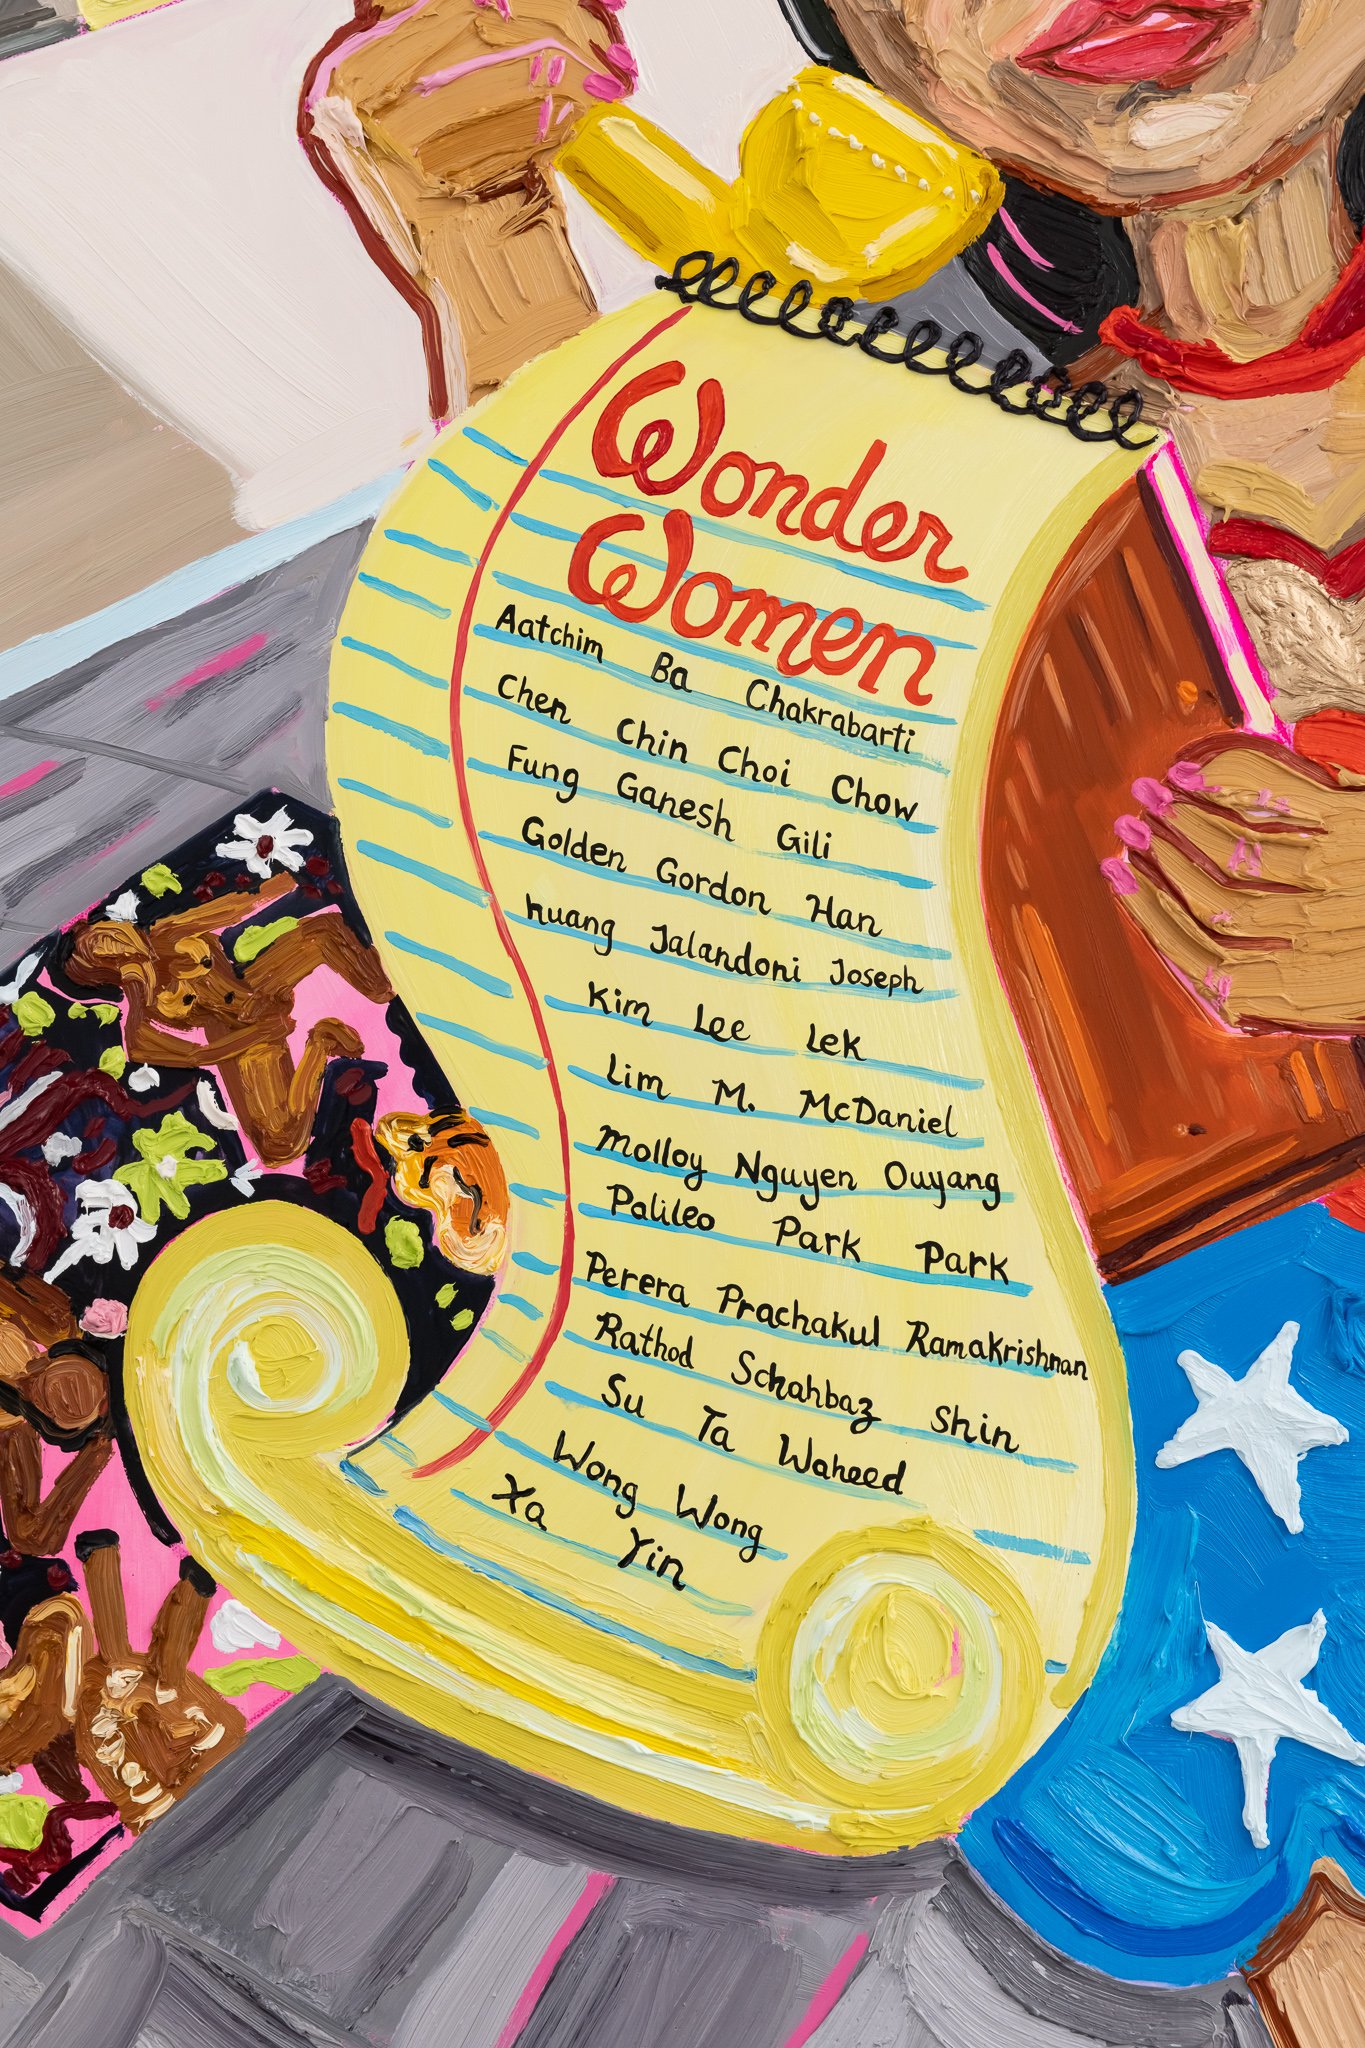 Wonder
Women
Aatchim Ba Chakrabarti
Chen Chin Choi Chow
Fung Ganesh Gili
Golden Gordon Han
huang Jalandoni Joseph
Kim Lee Lek
Lim M. McDaniel
Molloy Nguyen Ouyang
Palileo Park Park
Perera Prachakul Ramakrishnan
Rathod Schahbaz Shin
Su Ta Waheed
Wong Wong
Xa Yin